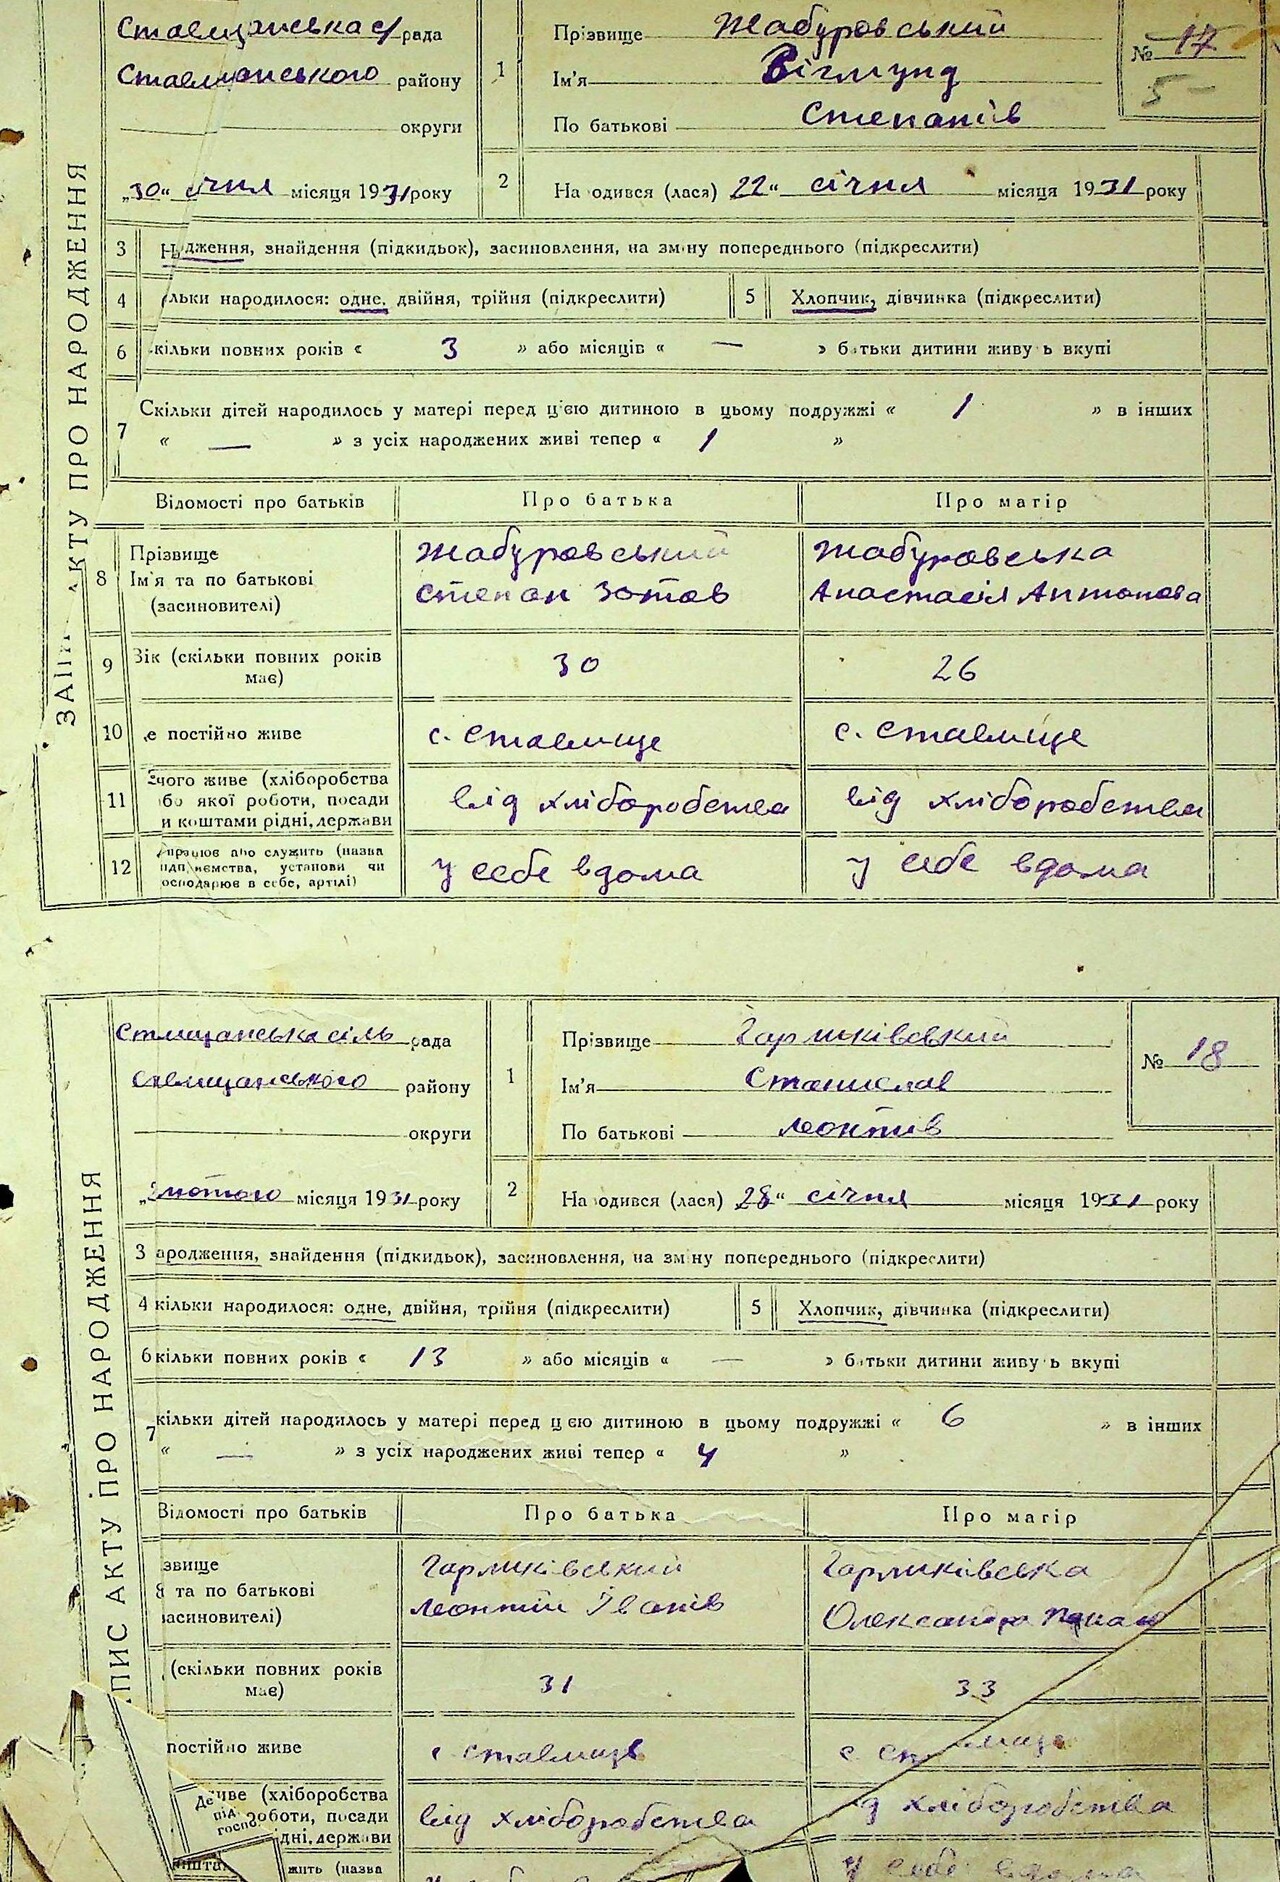 Ставищанська с/ рада
Ставищанського району
округи
„30“ січня місяця 1931 року
1
Прізвище Жабуровський
Ім'я Вігмунд
По батькові Степанів
№ 17
5 –
2
На одився (лася) 22“ січня місяця 1931 року
3 На дження, знайдення (підкидьок), засиновлення, на зміну попереднього (підкреслити)
4 льки народилося: одне, двійня, трійня (підкреслити)
5 Хлопчик, дівчинка (підкреслити)
6 кільки повних років « 3 » або місяців « — » батьки дитини живу ь вкупі
7 Скільки дітей народилось у матері перед цією дитиною в цьому подружжі « 1 » в інших
« — » з усіх народжених живі тепер « 1 »
Відомості про батьків Про батька Про матір
8 Прізвище Жабуровський Жабуровська
Ім'я та по батькові Степан Зотов Анастасія Антонова
(засиновителі)
9 Вік (скільки повних років має) 30 26
10 е постійно живе с. Ставище с. Ставище
11 чого живе (хліборобства від хліборобства від хліборобства
бо якої роботи, посади
и коштами рідні, держави
12 працює або служить (назва у себе вдома у себе вдома
ідприємства, установи чи
осподарює в себе, артілі)
ЗАПИ АКТУ ПРО НАРОДЖЕННЯ
Стищанська сіль рада
Ставищанського району
округи
„2 лютого місяця 1931 року
1
Прізвище Гарликівський
Ім'я Станислав
По батькові Леонтів
№ 18
2
На одився (лася) 28“ січня місяця 1931 року
3 ародження, знайдення (підкидьок), засиновлення, на зміну попереднього (підкреслити)
4 кільки народилося: одне, двійня, трійня (підкреслити)
5 Хлопчик, дівчинка (підкреслити)
6 кільки повних років « 13 » або місяців « — » батьки дитини живу ь вкупі
7 кільки дітей народилось у матері перед цією дитиною в цьому подружжі « 6 » в інших
« — » з усіх народжених живі тепер « 4 »
Відомості про батьків Про батька Про матір
звище Гарликівський Гарликівська
я та по батькові Леонтій Іванів Олександра
засиновителі)
(скільки повних років має) 31 33
постійно живе с. Ставище с
живе (хліборобства від хліборобства д хліборобства
роботи, посади
дні, держави
жить (назва у себе вдома
Де
від
госпо
ПИС АКТУ ПРО НАРОДЖЕННЯ